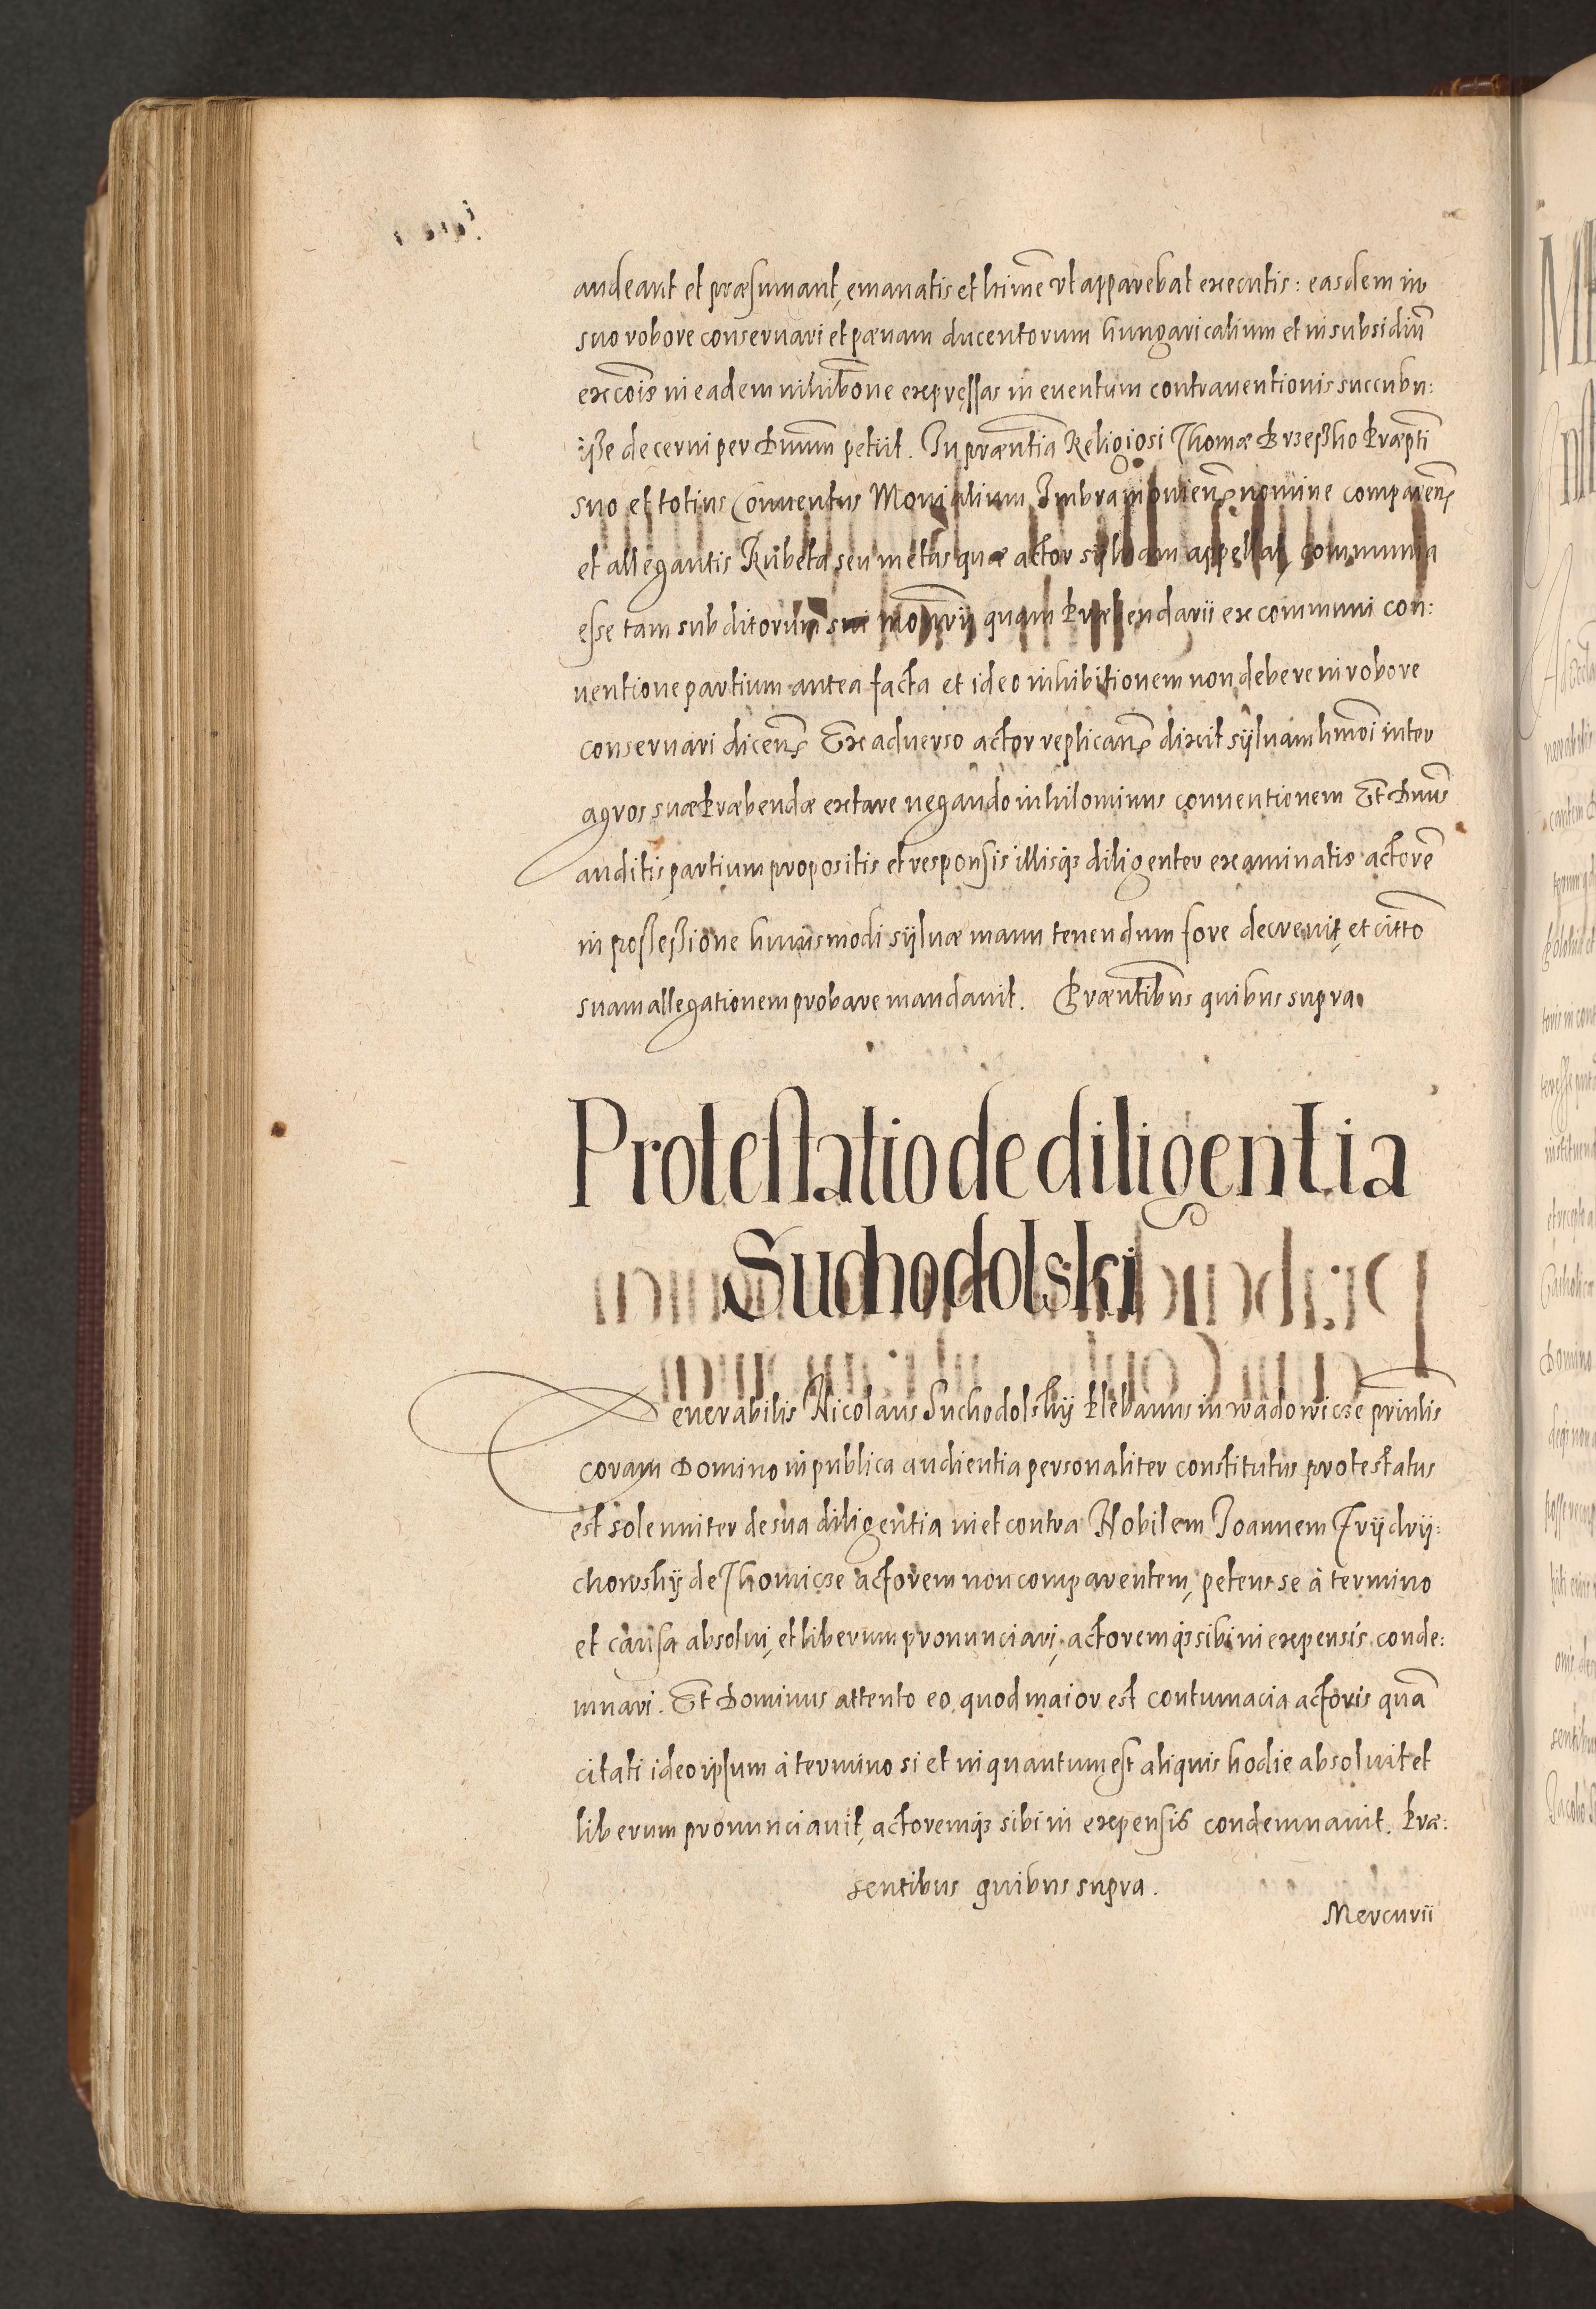 audeant et præsumant, emanatis et ltime vt apparebat executis: easdem in
suo robore conseruari et pœnam ducentorum hungaricalium et in subsidiū
excōis in eadem inhibōne expressas in euentum contrauentionis succubu:
isse decerni per Dnum petiit. In præntia Religiosi Thomæ Brzesko Præpti
suo et totius Conuentus Monialium Imbramouien nomine comparen
et allegantis Rubeta seu metas quæ actor syluam appellat, communia
esse tam subditorum sui monrii quam Præbendarii ex communi con:
uentione partium antea facta et ideo inhibitionem non debere in robore
conseruari dicen Ex aduerso actor replican dixit syluam hmōi inter
agros suæ Præbendæ extare negando nihilominus conuentionem Et Dnus
auditis partium propositis et responsis illisq3 diligenter examinatis actorē
in possessione huiusmodi syluæ manu tenendum fore decreuit, et citto
suam allegationem probare mandauit. Præntibus quibus supra.
Protestatio de diligentia
Suchodolski
Venerabilis Nicolaus Suchodolsky Plebanus in Wadowicze prinlis
coram Domino in publica audientia personaliter constitutus protestatus
est solenniter de sua diligentia in et contra Nobilem Joannem Frydry:
chowsky de Thomicze actorem non comparentem, petens se à termino
et causa absolui, et liberum pronunciari, actoremq3 sibi in expensis conde:
mnari. Et Dominus attento eo, quod maior est contumacia actoris quā
citati ideo ipsum à termino si et in quantum est aliquis hodie absoluit et
liberum pronunciauit, actoremq3 sibi in expensis condemnauit. Præ:
sentibus quibus supra.
Mercurii